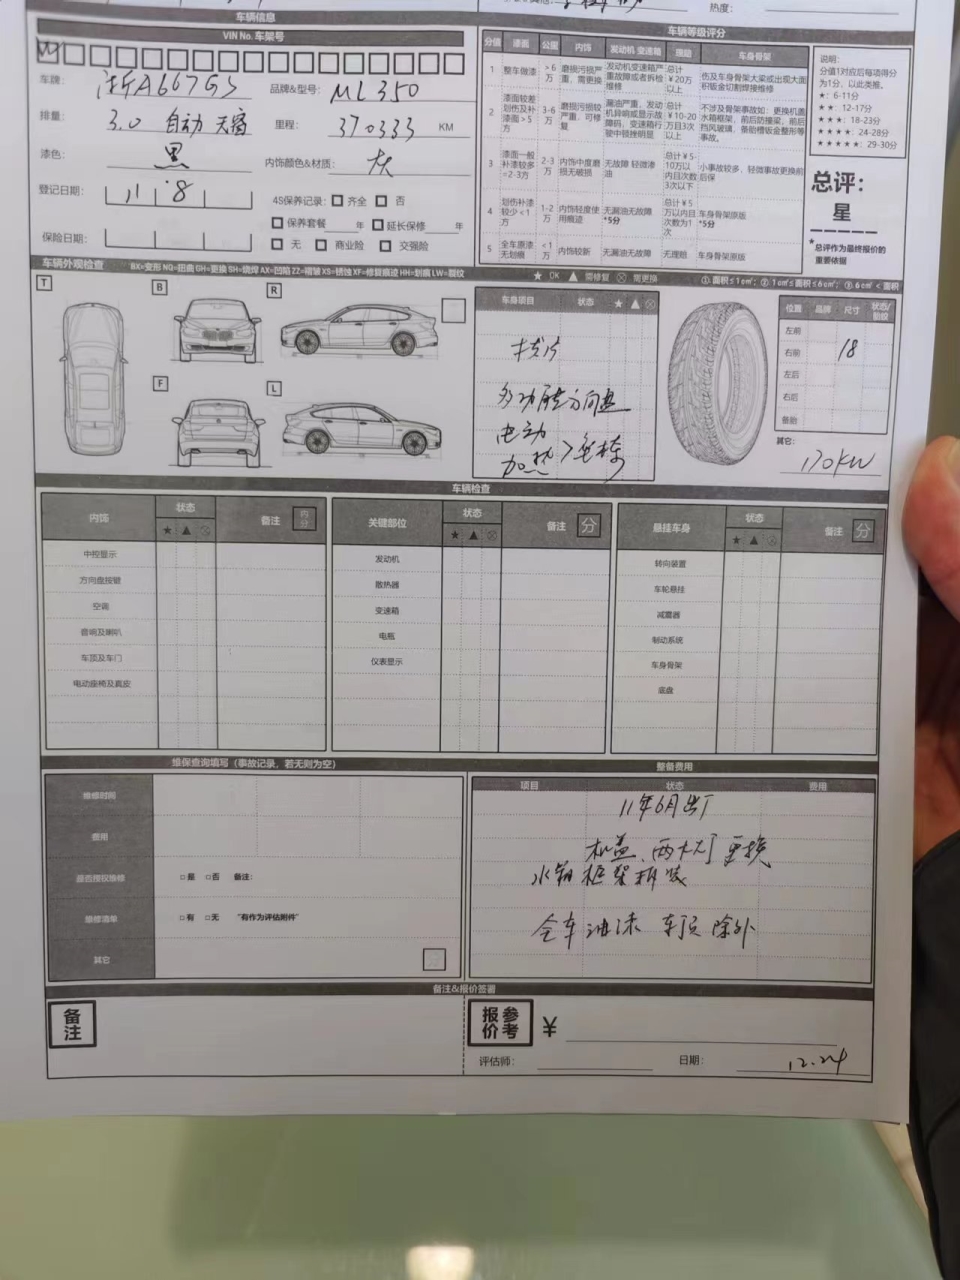 热度:
车辆信息
VIN No. 车架号
车牌: 浙A667GS 品牌&型号: ML350
排量: 3.0 自动 天窗 里程: 370333 KM
漆色: 黑 内饰颜色&材质: 灰
登记日期: 11 8 4S保养记录: 齐全 否
保养套餐 年 延长保修 年
保险日期: 无 商业险 交强险
车辆等级评分
分值 漆面 公里 内饰 发动机 变速箱 理赔 车身骨架
1 整车做漆 >6万 磨损污损严重，需更换 发动机变速箱严重故障或者拆检维修 总计￥20万以上 伤及车身骨架大梁或出现大面积钣金切割焊接维修
2 漆面较差划伤及补漆面>5方 3-6万 磨损污损较严重，可修复 漏油严重，发动机异响或显示故障码，变速箱行驶中顿挫明显 总计￥10-20万且3次以上 不涉及骨架事故如：更换机盖水箱框架，前后防撞梁，前后挡风玻璃，备胎槽钣金整形等事故。
3 漆面一般补漆较多=2-3方 2-3万 内饰中度磨损无破损 无故障 轻微渗油 总计￥5-10万以内且次数3次以下 小事故较多、轻微事故更换前后保
4 划伤补漆较少<1方 1-2万 内饰轻度使用痕迹 无漏油无故障*5分 总计￥5万以内且次数为1次 车身骨架原版*5分
5 全车原漆无划痕 <1万 内饰较新 无漏油无故障 无理赔 车身骨架原版
说明:
分值1对应后每项得分为1分，以此类推。
★: 6-11分
★★: 12-17分
★★★: 18-23分
★★★★: 24-28分
★★★★★: 29-30分
总评:
星
*总评作为最终报价的重要依据
车辆外观检查 BX=变形 NQ=扭曲 GH=更换 SH=烧焊 AX=凹陷 ZZ=褶皱 XS=锈蚀 XF=修复痕迹 HH=划痕 LW=裂纹 ★ OK ▲ 需修复 ⊗ 需更换 ①. 面积≤1㎝²; ②. 1㎝²≤面积≤6㎝²; ③. 6㎝²<面积
T B R
F L
车身项目 状态 ★ ▲ ⊗
拨片
多功能方向盘
电动
加热 >座椅
位置 品牌 尺寸 状态/胎纹
左前
右前 18
左后
右后
备胎
其它: 170KW
车辆检查
内饰 状态 ★ ▲ ⊗ 备注 内分
中控显示
方向盘按键
空调
音响及喇叭
车顶及车门
电动座椅及真皮
关键部位 状态 ★ ▲ ⊗ 备注 分
发动机
散热器
变速箱
电瓶
仪表显示
悬挂车身 状态 ★ ▲ ⊗ 备注 分
转向装置
车轮悬挂
减震器
制动系统
车身骨架
底盘
维保查询填写（事故记录，若无则为空）
维修时间
费用
是否授权维修 □是 □否 备注:
维修清单 □有 □无 "有作为评估附件"
其它
整备费用
项目 状态 费用
11年6月出厂
机盖、两大灯更换
水箱框架拆装
全车油漆 车顶除外
备注&报价签署
备注
参考报价 ￥
评估师: 日期: 12.24